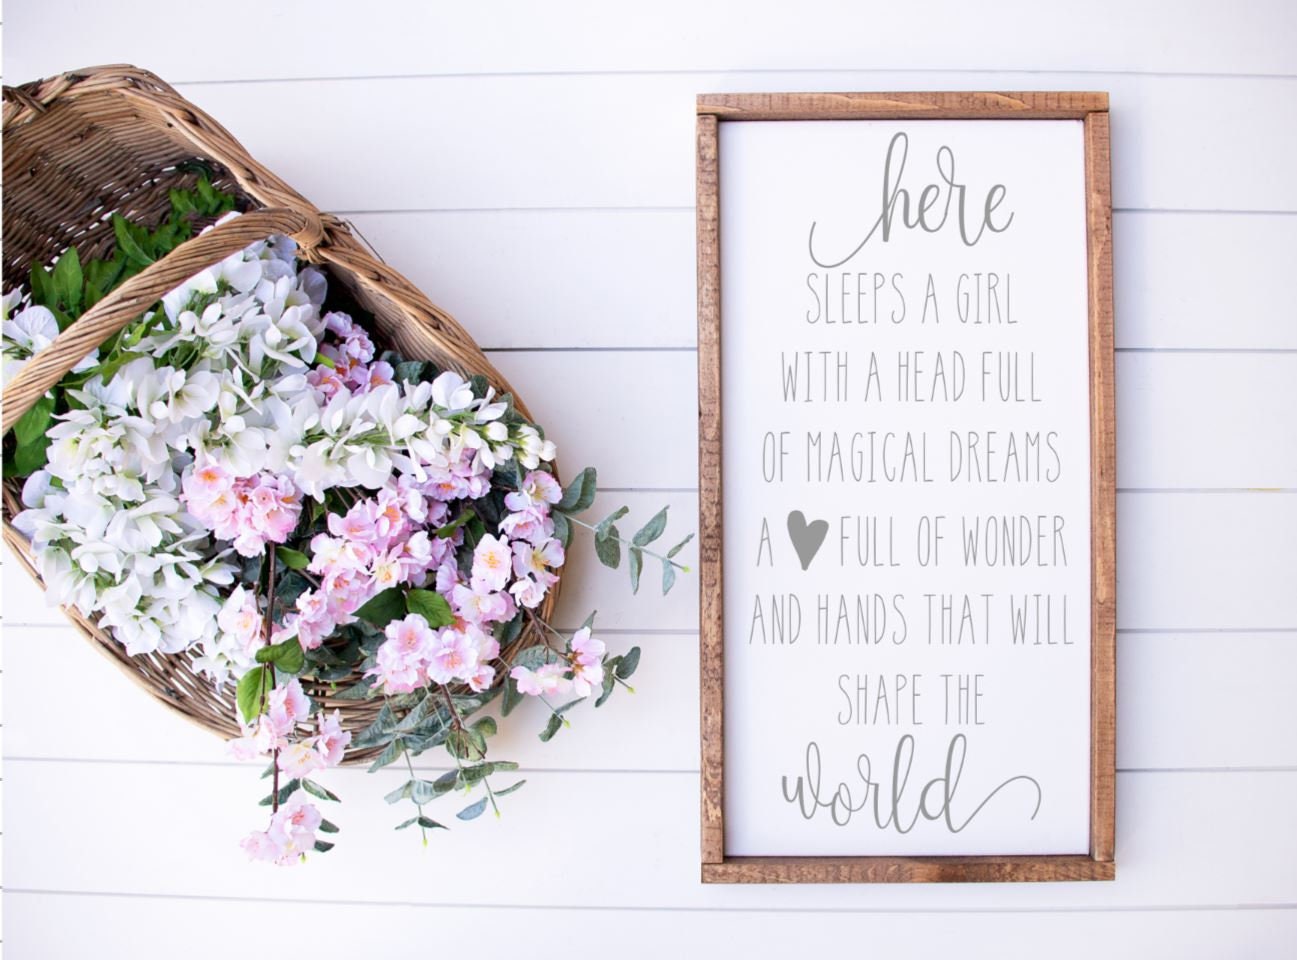 here
SLEEPS A GIRL
WITH A HEAD FULL
OF MAGICAL DREAMS
A ♥ FULL OF WONDER
AND HANDS THAT WILL
SHAPE THE
world